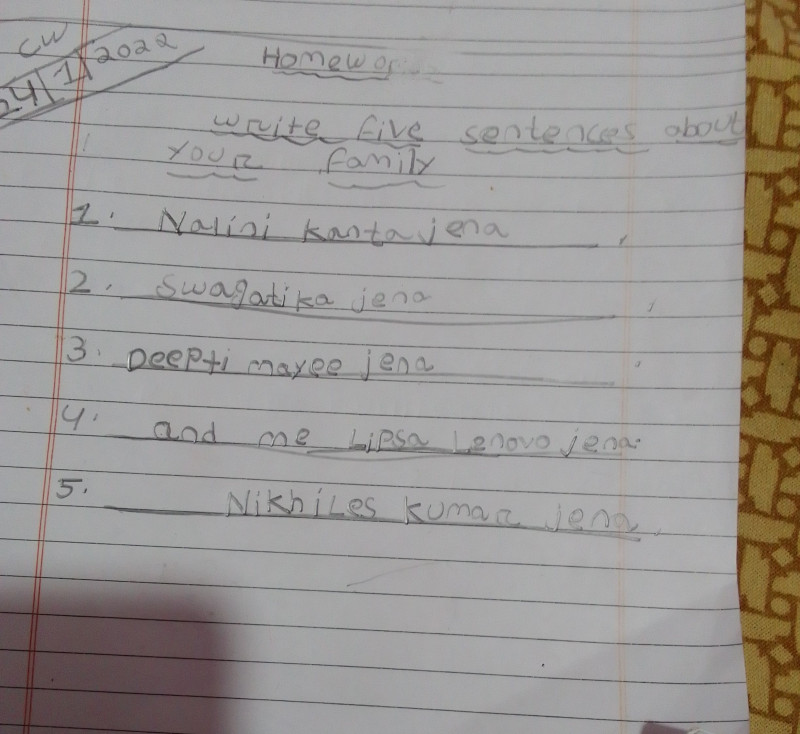 CW
24/1/2022
Homework
write five sentences about
your family
1. Nalini kanta jena
2. Swagatika jena
3. Deepti mayee jena
4. and me Lipsa Lenovo jena.
5. Nikhiles kumar jena